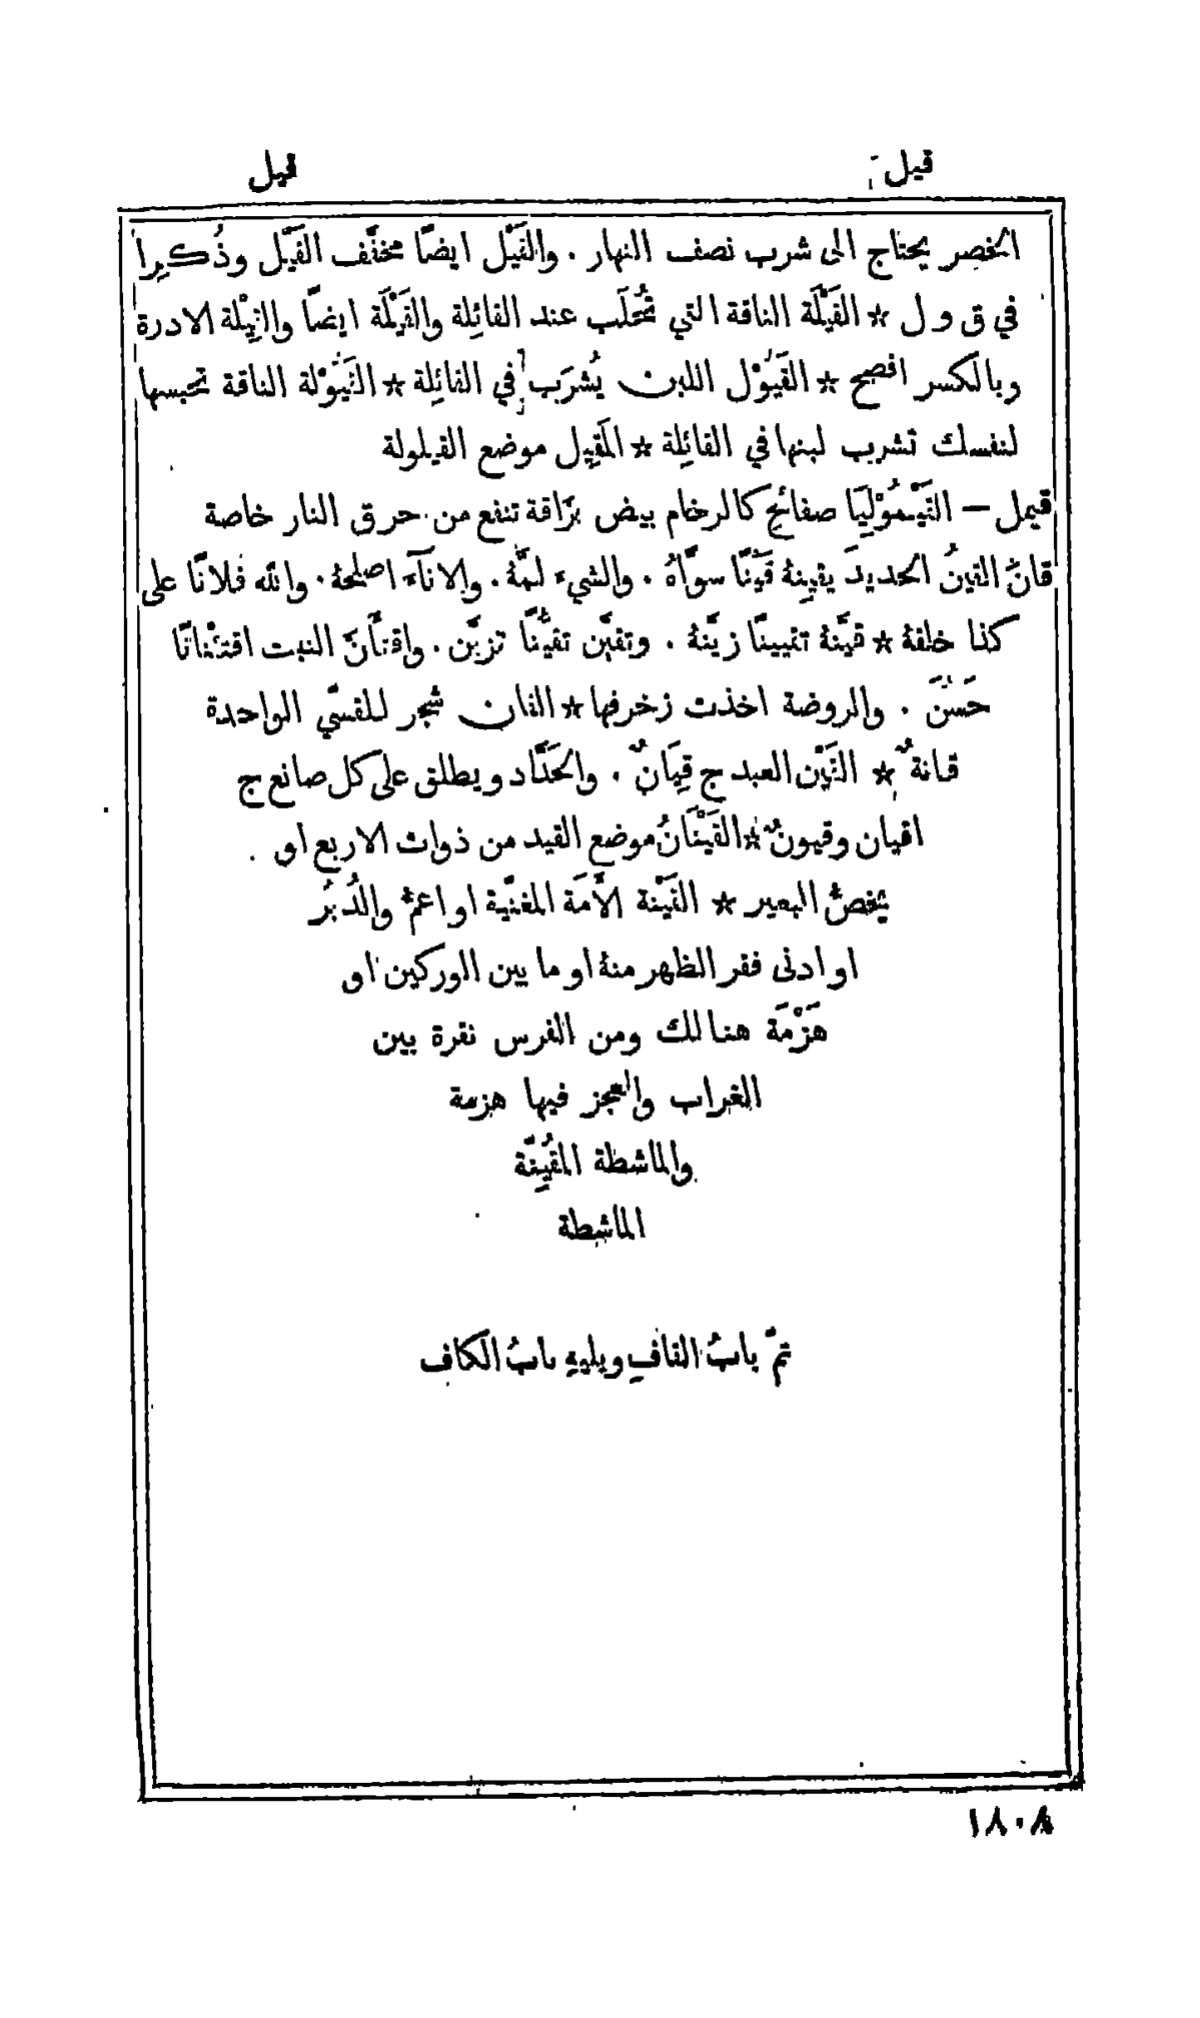 قيل
قيل
الخصر يحتاج الى شرب نصف النهار . والقَيْل ايضًا مخفَّف القَيّل وذُكِرا
في ق و ل * القَيْلَة الناقة التي تُحلَب عند القائِلة والقَيْلَة ايضًا والقِيْلة الادرة
وبالكسر افصح * القَيُوْل اللبن يُشرَب في القائِلة * القَيُوْلة الناقة تحبسها
لنفسك تشرب لبنها في القائِلة * المَقِيل موضع القيلولة
قيمل — القَيْمُوْلِيَا صفائح كالرخام بيض برَّاقة تنفع من حرق النار خاصة
قانَ القينُ الحديدَ يقينهُ قَيْنًا سوَّاهُ . والشيءَ لمَّهُ . والانآءَ اصلحهُ . والله فلانًا على
كذا خلقهُ * قيَّنهُ تقيينًا زيَّنهُ . وتقيَّن تقيُّنًا تزيَّن . واقتأَنَّ النبت اقتئنانًا
حَسُنَ . والروضة اخذت زخرفها * القان شجر للقسّي الواحدة
قانةٌ * القَيْن العبد ج قِيَانٌ . والحَدَّاد ويطلق على كل صانع ج
اقيان وقيونٌ * القَيْنَانُ موضع القيد من ذوات الاربع او
يخصُّ البعير * القَيْنة الأَمَة المغنّية او اعمُّ والدُبُر
او ادنى فقر الظهر منهُ او ما بين الوركين او
هَزْمَة هنالك ومن الفرس نقرة بين
الغراب والعجز فيها هزمة
والماشطة المُقَيِّنَة
الماشطة
تمَّ بابُ القافِ ويليهِ بابُ الكاف
١٨٠٨